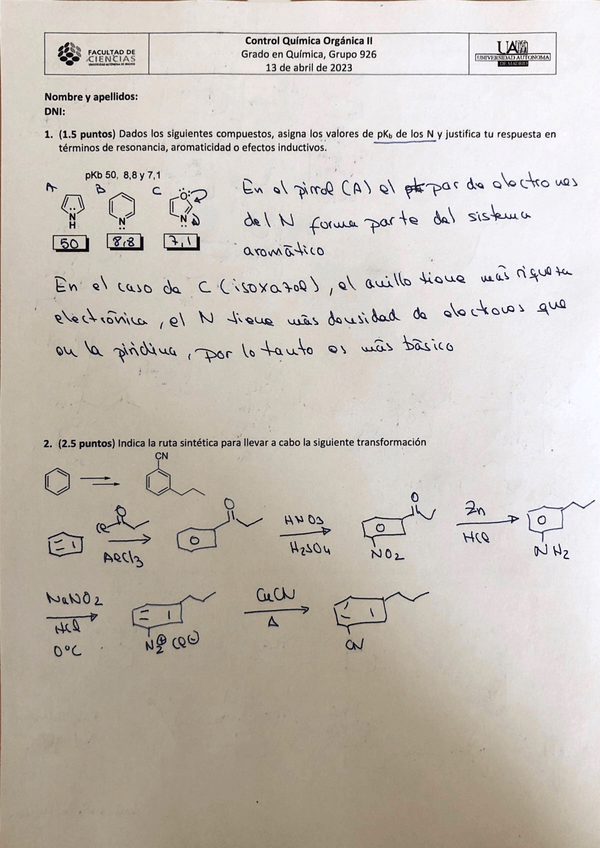 FACULTAD DE
CIENCIAS
UNIVERSIDAD AUTÓNOMA DE MADRID
Control Química Orgánica II
Grado en Química, Grupo 926
13 de abril de 2023
UAM
UNIVERSIDAD AUTONOMA
DE MADRID
Nombre y apellidos:
DNI:
1. (1.5 puntos) Dados los siguientes compuestos, asigna los valores de pKb de los N y justifica tu respuesta en
términos de resonancia, aromaticidad o efectos inductivos.
pKb 50, 8,8 y 7,1
A B C
N
H
N
O
N
50 8,8 7,1
En el pirrol (A) el par de electrones
del N forma parte del sistema
aromático
En el caso de C (isoxazol), el anillo tiene más riqueza
electrónica, el N tiene más densidad de electrones que
en la piridina, por lo tanto es más básico
2. (2.5 puntos) Indica la ruta sintética para llevar a cabo la siguiente transformación
CN
Cl O
AlCl3
O
HNO3
H2SO4
O
NO2
Zn
HCl
NH2
NaNO2
HCl
0°C
N2⊕ Cl⊖
CuCN
Δ
CN